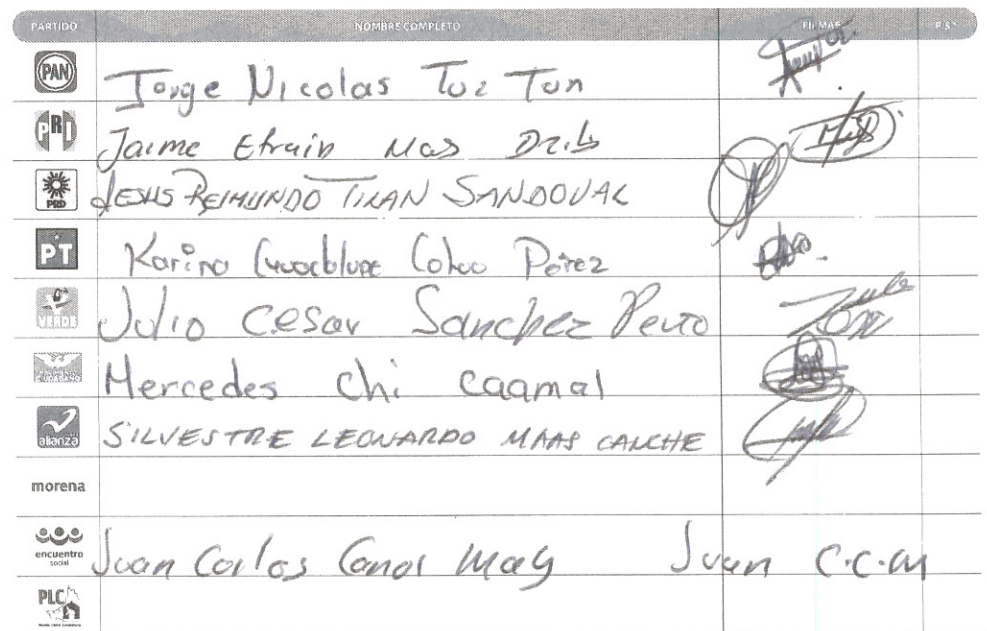 PARTIDO NOMBRE COMPLETO FIRMAS
PAN Jorge Nicolas Tuz Tun
PRI Jaime Efrain Mas Dzib
PRD JESUS REIMUNDO SANDOVAL
PT Karina Guadalupe Pérez
VERDE Julio Cesar Sanchez
Mercedes Chi Caamal
alianza SILVESTRE LEONARDO MAAS CANCHE
morena
encuentro social Juan Carlos May Juan C.C.M
PLC